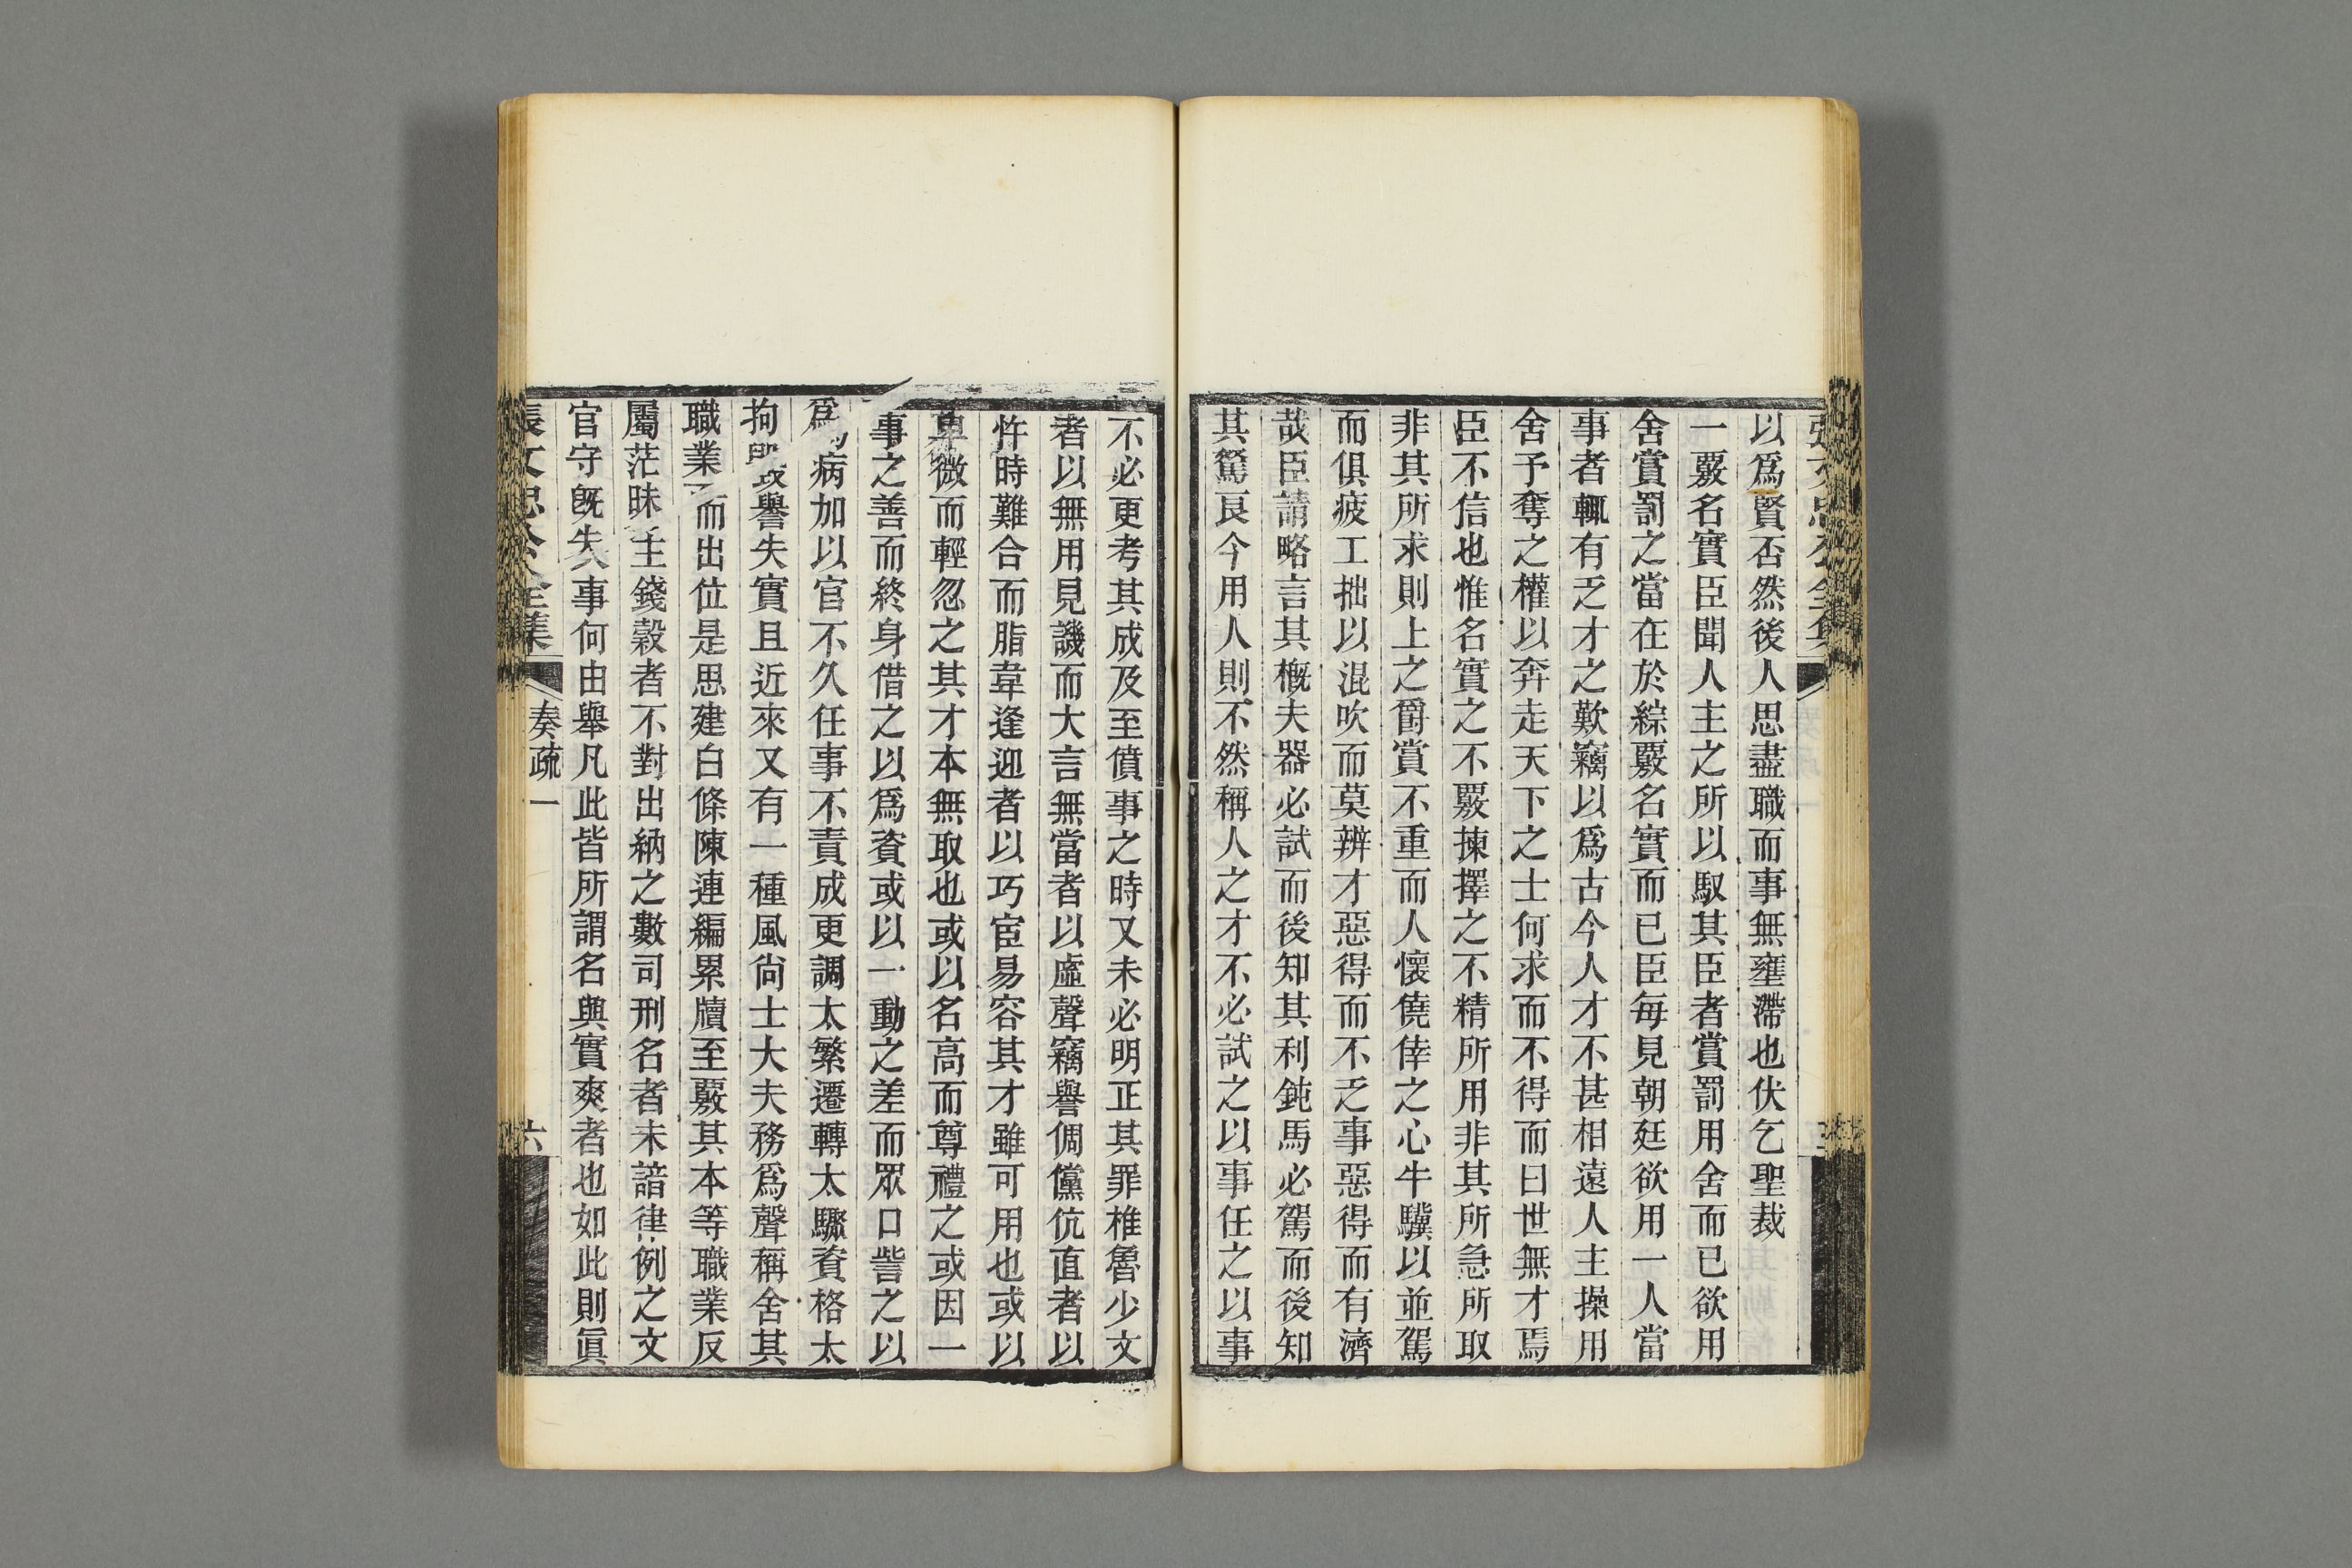 以爲賢否然後人思盡職而事無壅滯也伏乞聖裁
一覈名實臣聞人主之所以馭其臣者賞罰用舍而已欲用
舍賞罰之當在於綜覈名實而已臣每見朝廷欲用一人當
事者輒有乏才之歎竊以爲古今人才不甚相遠人主操用
舍予奪之權以奔走天下之士何求而不得而曰世無才焉
臣不信也惟名實之不覈揀擇之不精所用非其所急所取
非其所求則上之爵賞不重而人懷僥倖之心牛驥以並駕
而俱疲工拙以混吹而莫辨才惡得而不乏事惡得而有濟
哉臣請略言其槪夫器必試而後知其利鈍馬必駕而後知
其駑良今用人則不然稱人之才不必試之以事任之以事
不必更考其成及至僨事之時又未必明正其罪椎魯少文
者以無用見譏而大言無當者以虛聲竊譽倜儻伉直者以
忤時難合而脂韋逢迎者以巧宦易容其才雖可用也或以
卑微而輕忽之其才本無取也或以名高而尊禮之或因一
事之善而終身借之以爲資或以一動之差而眾口訾之以
爲病加以官不久任事不責成更調太繁遷轉太驟資格太
拘毀譽失實且近來又有一種風尙士大夫務爲聲稱舍其
職業而出位是思建白條陳連編累牘至覈其本等職業反
屬茫昧主錢穀者不對出納之數司刑名者未諳律例之文
官守旣失事何由舉凡此皆所謂名與實爽者也如此則眞
張文忠公全集
奏疏一
六